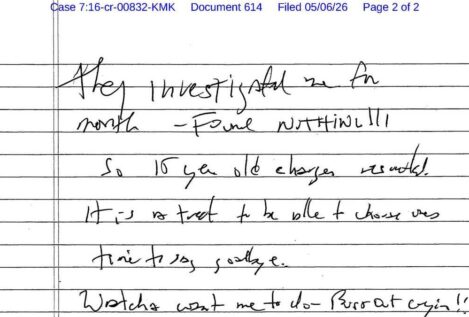 Case 7:16-cr-00832-KMK Document 614 Filed 05/06/26 Page 2 of 2
They investigated me for
month - Found NOTHING!!!
So 15 year old charges resulted.
It is a treat to be able to choose
time to say goodbye.
Watcha want me to do - Burst out cryin!!